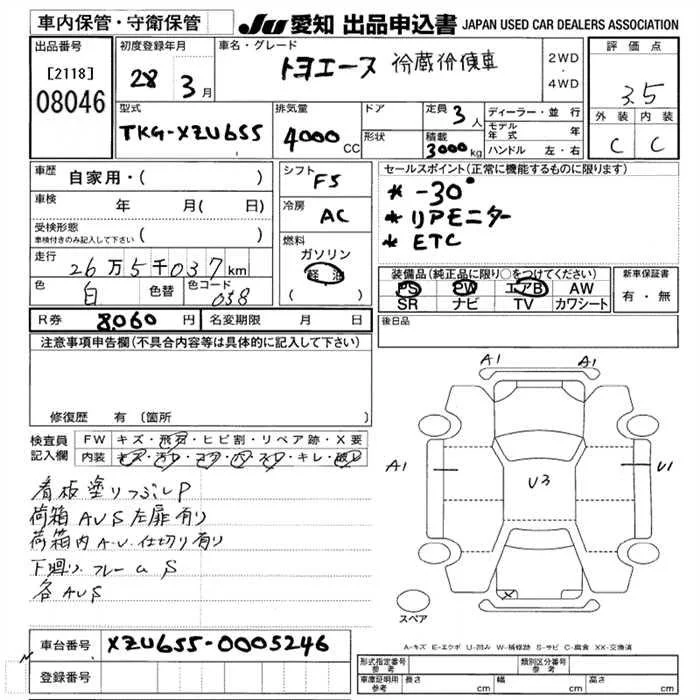 車内保管・守衛保管
JU 愛知 出品申込書 JAPAN USED CAR DEALERS ASSOCIATION
出品番号
[2118]
08046
初度登録年月
28 3月
車名・グレード
トヨエース 冷蔵冷凍車
2WD
・
4WD
評価点
3.5
外装 内装
C C
型式
TKG-XZU655
排気量
4000 CC
ドア
形状
定員 3人
積載 3000kg
ディーラー・並行
モデル年式 年
ハンドル 左・右
車歴 自家用・( )
車検 年 月( 日)
受検形態
車検付きのみ記入して下さい ( )
走行
26万5千037km
色 白 色替 色コード 058
シフト F5
冷房 AC
燃料
ガソリン
軽油
( )
セールスポイント(正常に機能するものに限ります)
* -30°
* リアモニター
* ETC
装備品(純正品に限り○をつけてください)
PS PW エアB AW
SR ナビ TV カワシート
新車保証書
有・無
R券 8,060円 名変期限 月 日
後日品
注意事項申告欄(不具合内容等は具体的に記入して下さい)
修復歴 有 (箇所 )
検査員記入欄
FW キズ・飛石・ヒビ割・リペア跡・X要
内装 キズ・汚レ・コゲ・穴・スレ・キレ・破レ
看板塗りつぶしP
荷箱AUS左扉有り
荷箱内A.U.仕切り有り
下廻り.フレームS
各AUS
A1 A1
A1 U3 U1
X
スペア
A-キズ E-エクボ U-凹み W-補修跡 S-サビ C-腐食 XX-交換済
車台番号 XZU655-0005246
登録番号
形式指定番号
参考
類別区分番号
参考
車庫証明用
参考
長さ cm 幅 cm 高さ cm